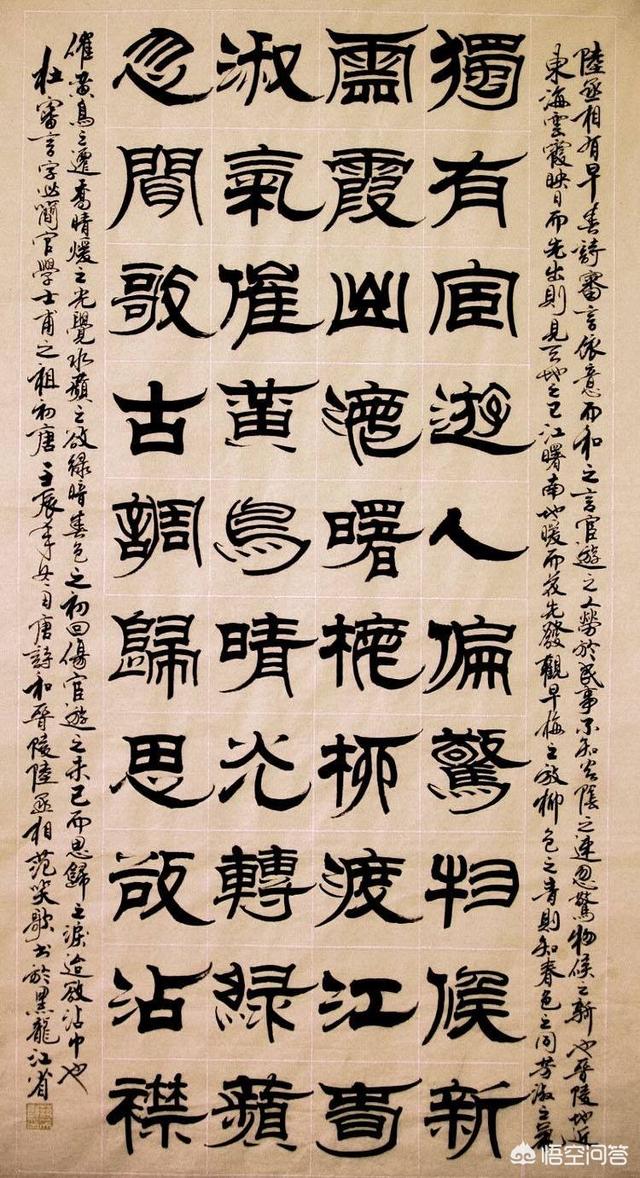 陸丞相有早春詩審言依意而和之言宦遊之人勞於民事不知光陰之速忽驚物候之新也晉陵地近
東海雲霞映日而先出則見天地之已江曙南地暖而花先發觀早梅之放柳色之青則知春色之同芳淑之氣
獨有宦遊人偏驚物候新
雲霞出海曙梅柳渡江春
淑氣催黃鳥晴光轉綠蘋
忽聞歌古調歸思欲沾襟
催黃鳥之遷喬晴煖之光覺水蘋之欲綠暗春色之初回傷宦遊之未已而思歸之淚迨欲沾巾也
杜審言字必簡官學士甫之祖初唐壬辰年冬月唐詩和晉陵陸丞相范笑歌書於黑龍江省
悟空问答